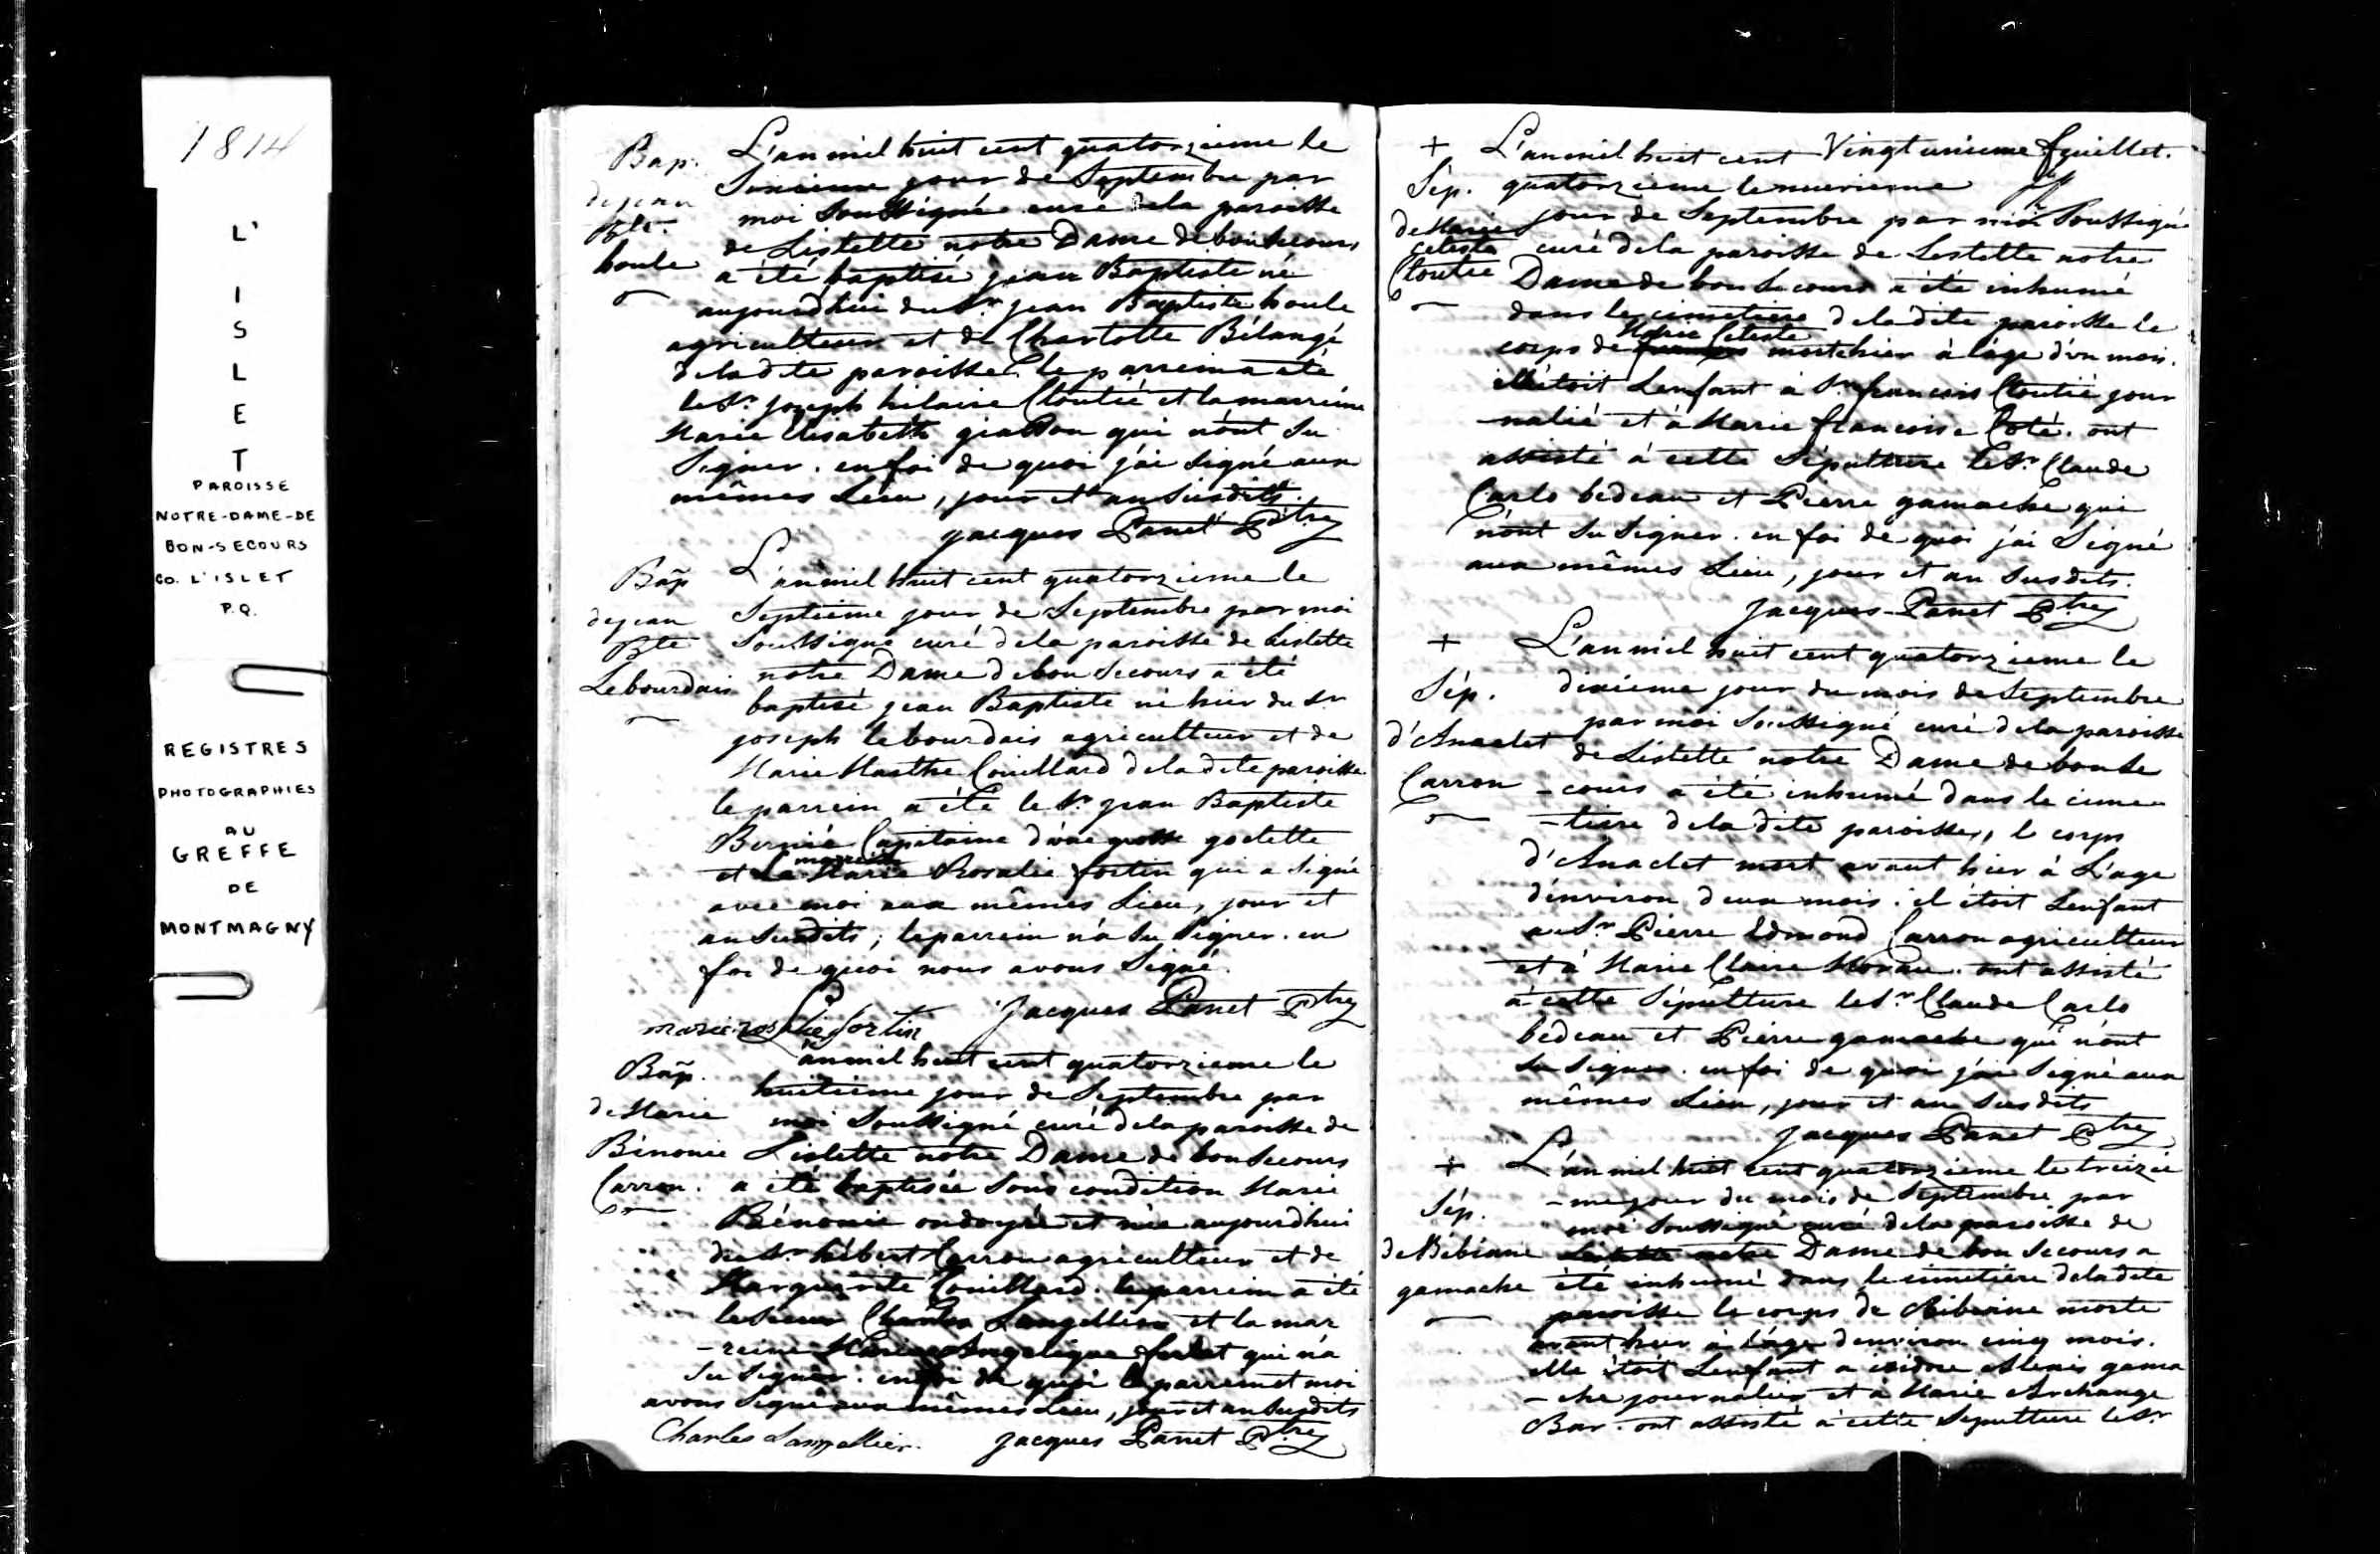 1814
L'
I
S
L
E
T
PAROISSE
NOTRE-DAME-DE
BON-SECOURS
CO. L'ISLET
P.Q.
REGISTRES
PHOTOGRAPHIES
AU
GREFFE
DE
MONTMAGNY
Bap.
de jean
Bte.
houle
L'an mil huit cent quatorzieme le
Sixieme jour de Septembre par
moi Soussigné curé dela paroisse
de Lislette notre Dame de bonsecours
a été baptisé jean Baptiste né
aujourd'hui du Sr. jean Baptiste houle
agriculteur et de Charlotte Bélangé
dela dite paroisse. le parrein a été
le Sr. joseph hilaire Cloutié et la marreine
Marie Elisabeth giasson qui n'ont Su
Signer. en foi de quoi j'ai Signé aux
mêmes Lieu, jour et an Susdits.
jacques Panet Ptre
Bap
de jean
Bte
Lebourdais
L'an mil huit cent quatorzieme le
Septieme jour de Septembre par moi
Soussigné curé dela paroisse de Lislette
notre Dame de bon Secours a été
baptisé jean Baptiste né hier du Sr
joseph lebourdais agriculteur et de
Marie Marthe Couillard dela dite paroisse.
le parrein a été le Sr. jean Baptiste
Bernié Capitaine d'une grosse goelette
et La marreine Marie Rosalie fortin qui a Signé
avec moi aux mêmes Lieu, jour et
an Susdits; le parrein n'a Su Signer. en
foi de quoi nous avons Signé.
Jacques Panet Ptre
marie rosalie fortin
Bap.
de Marie
Bénonie
Carron.
L'an mil huit cent quatorzieme le
huitieme jour de Septembre par
moi Soussigné curé dela paroisse de
Lislette notre Dame de bon Secours
a été baptisée Sous condition Marie
Bénonie ondoyée et née aujourdhui
du Sr. hébert Carron agriculteur et de
Marguerite Couillard. le parrein a été
le Sieur Charles Langellier et la mar
-reine Marie Angelique qui n'a
Su Signer. en foi de quoi le parrein et moi
avons Signé aux mêmes Lieu, jour et an Susdits
Charles Langellier. jacques Panet Ptre
Vingt unieme feuillet.
+
Sép.
de Marie
Celeste
Cloutié
L'an mil huit cent
quatorzieme le neuvieme
jour de Septembre par moi Soussigné
curé dela paroisse de Lislette notre
Dame de bon Secours a été inhumé
dans le cimetiere dela dite paroisse le
corps de Marie Celeste mort hier à l'âge d'un mois.
étoit Lenfant à Sr. francois Cloutié jour
-nalié et à Marie francoise Coté. ont
assisté à cette Sépulture le Sr. Claude
Carlo bedeau et Pierre gamache qui
n'ont Su Signer. en foi de quoi j'ai Signé
aux mêmes Lieu, jour et an Susdits.
Jacques Panet Ptre
+
Sép.
d'Anaclet
Carron
L'an mil huit cent quatorzieme le
dixieme jour du mois de Septembre
par moi Soussigné curé dela paroisse
de Lislette notre Dame de bon Se
-cours a été inhumé dans le cime
-tiere dela dite paroisse, le corps
d'Anaclet mort avant hier à L'age
d'environ deux mois. il étoit Lenfant
au Sr. Pierre Edmond Carron agriculteur
et à Marie Claire Morau. ont assisté
à cette Sépulture le Sr. Claude Carlo
bedeau et Pierre gamache qui n'ont
Su Signer. en foi de quoi j'ai Signé aux
mêmes Lieu, jour et an Susdits
Jacques Panet Ptre
+
Sép.
de Bébiane
gamache
L'an mil huit cent quatorzieme le treizie
-me jour du mois de Septembre par
moi Soussigné curé dela paroisse de
Lislette notre Dame de bon Secours a
été inhumé dans le cimetiere dela dite
paroisse le corps de Bibiane morte
avant hier à L'age d'environ cinq mois.
elle étoit Lenfant a isidore Alexis gama
-che journalier et à Marie Archange
Bar. ont assisté à cette Sepulture le Sr